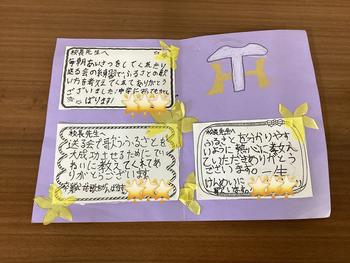 校長先生へ
毎朝あいさつをしてくれたり
送る会の練習で、ふるさとの歌
い方を考えてくれてありがとう
ございました！中学に
ばります！
校長先生へ
送る会で歌うふるさとを
大成功させるためにてい
ねいに教えてくれてあ
りがとうございます
校長先生へ
ふるさとを分かりやす
いように熱心に教え
ていただきありがとう
ございます。一生
けんめいに